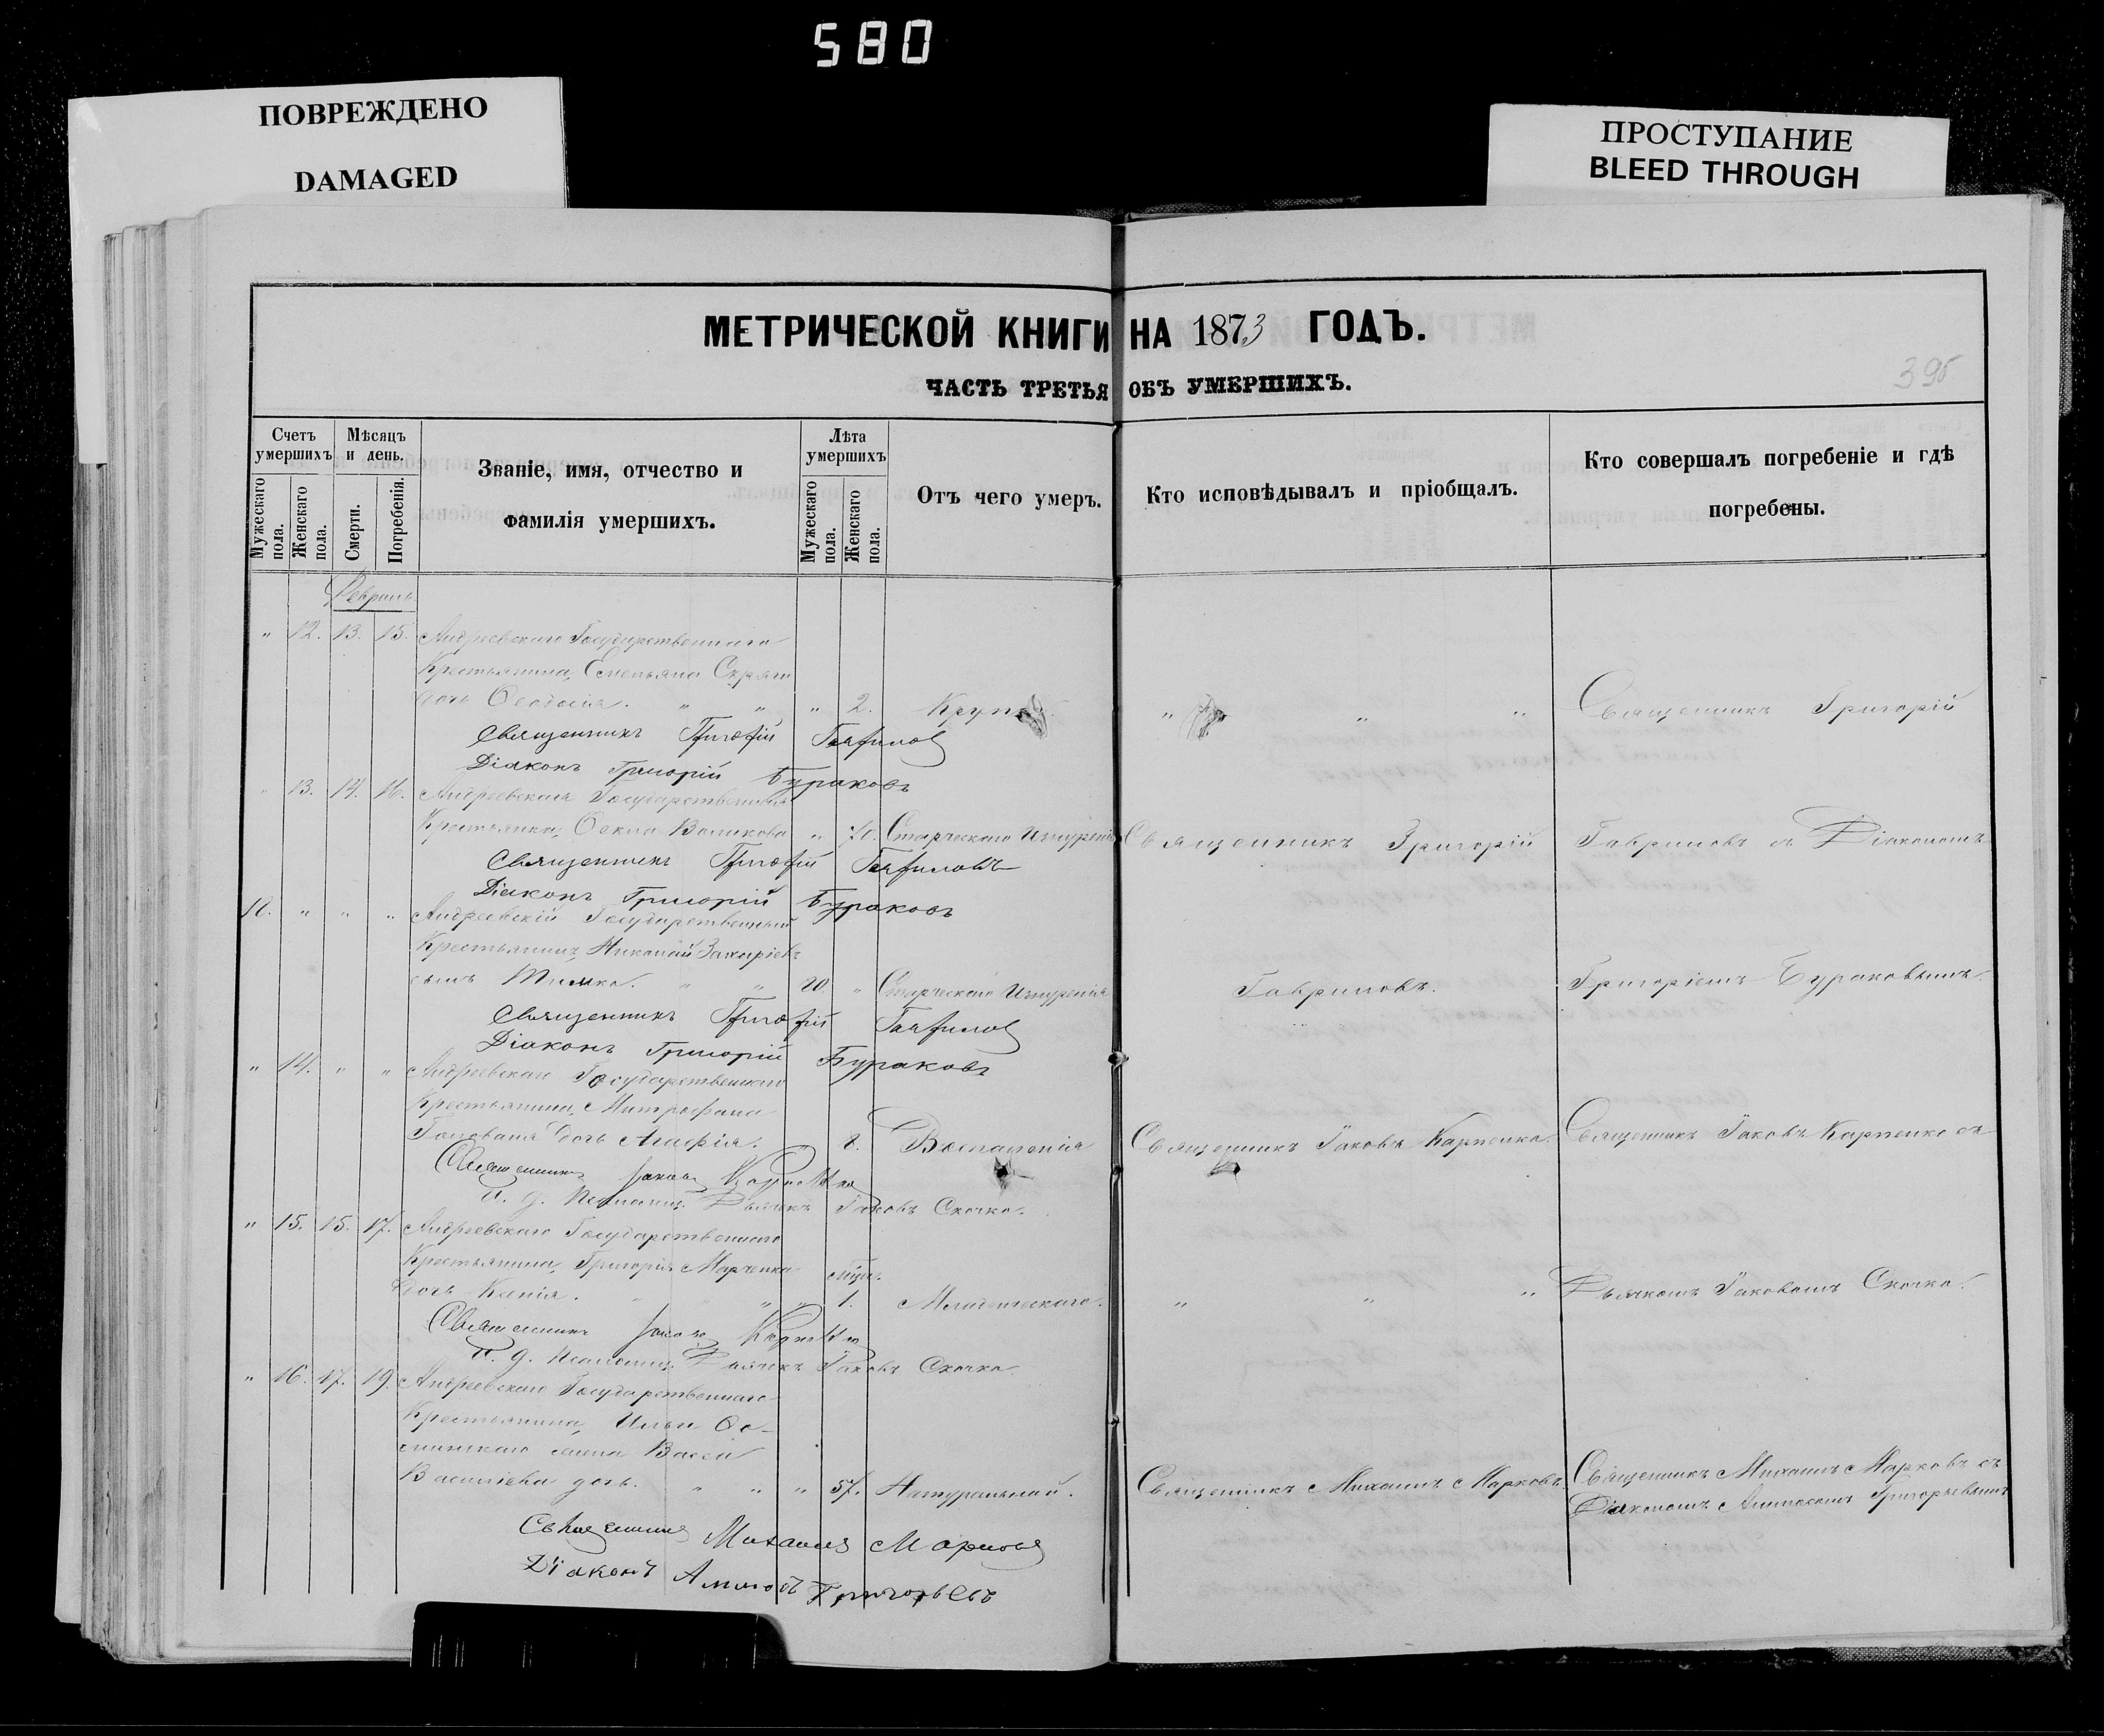 580
ПОВРЕЖДЕНО
DAMAGED
ПРОСТУПАНИЕ
BLEED THROUGH
МЕТРИЧЕСКОЙ КНИГИ НА 1873 ГОДЪ.
ЧАСТЬ ТРЕТЬЯ ОБЪ УМЕРШИХЪ.
395
Счетъ умершихъ
Мужескаго пола.
Женскаго пола.
Мѣсяцъ и день.
Смерти.
Погребенія.
Званіе, имя, отчество и
фамилія умершихъ.
Лѣта умершихъ
Мужескаго пола.
Женскаго пола.
Отъ чего умеръ.
Кто исповѣдывалъ и пріобщалъ.
Кто совершалъ погребеніе и гдѣ
погребены.
Февраль
" 12. 13. 15. Андреевскаго Государственнаго
Крестьянина, Емельяна
дочь Феодосія. " " " 2. " " " Священникъ Григорій
Священникъ Григорій Гаврилов
Діаконъ Григорій Бураковъ
" 13. 14. 16. Андреевская Государственная
Крестьянка, Фекла Великова " 70. Старческаго Изнуренія Священникъ Григорій Гавриловъ съ Діакономъ
Священникъ Григорій Гавриловъ
Діаконъ Григорій Бураковъ
" " " Андреевскій Государственный
Крестьянинъ, Николай Захаріевъ
сынъ " " " Старческаго Изнуренія Гавриловъ. Григоріемъ Бураковымъ.
Священникъ Григорій Гаврилов
Діаконъ Григорій Бураковъ
" 14. " " Андреевскаго Государственнаго
Крестьянина, Митрофана
дочь 8. Воспаленія Священникъ Іаковъ Карпенко. Священникъ Іаковъ Карпенко съ
Священникъ Іаковъ Карпенко
И. д. Псаломщ. Дьячекъ Іаковъ Скочко.
" 15. 15. 17. Андреевскаго Государственнаго
Крестьянина, Григорія Марченка
дочь Ксенія. " " " 1. Младенческаго. " " " Дьячкомъ Іаковомъ Скочко.
Священникъ Іаковъ Карпенко
И. д. Псаломщ. Дьячекъ Іаковъ Скочко.
" 16. 17. 19. Андреевскаго Государственнаго
Крестьянина, Ильи
жена Васса
Васильева дочь. " " " 57. Натуральной. Священникъ Михаилъ Марковъ. Священникъ Михаилъ Марковъ съ
Діакономъ Григорьевымъ
Священникъ Михаилъ Марковъ
Діаконъ Григорьевъ